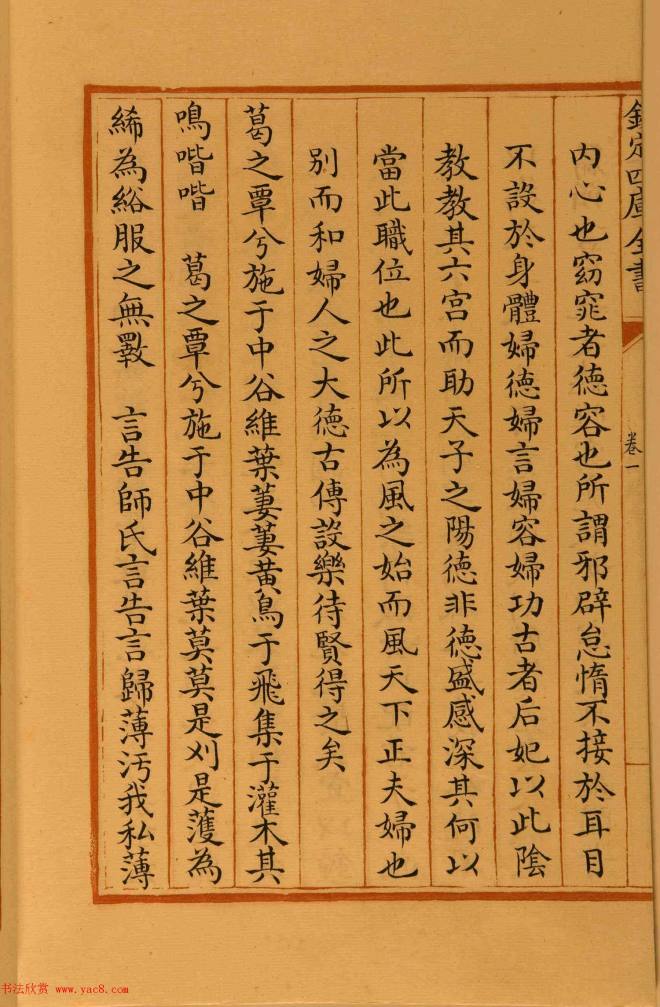 欽定四庫全書
卷一
內心也窈窕者德容也所謂邪辟怠惰不接於耳目
不設於身體婦德婦言婦容婦功古者后妃以此陰
教教其六宮而助天子之陽德非德盛感深其何以
當此職位也此所以為風之始而風天下正夫婦也
別而和婦人之大德古傳設樂待賢得之矣
葛之覃兮施于中谷維葉萋萋黃鳥于飛集于灌木其
鳴喈喈 葛之覃兮施于中谷維葉莫莫是刈是濩為
絺為綌服之無斁 言告師氏言告言歸薄污我私薄
书法欣赏 www.yac8.com